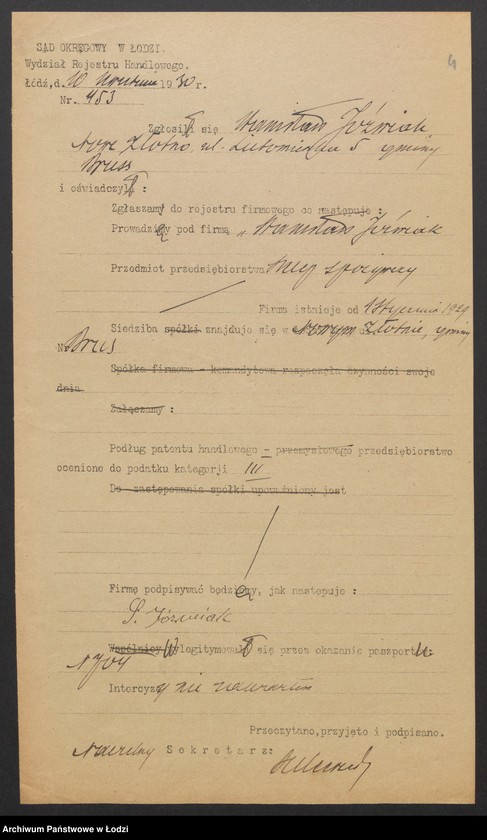 4
SĄD OKRĘGOWY W ŁODZI.
Wydział Rejestru Handlowego.
Łódź,d. 10 kwietnia 1930 r.
Nr. 453
Zgłosił się Stanisław Jóźwiak
Nowe Złotno, ul. Lutomierska 5 gminy
Bruss
i oświadczył :
Zgłaszam do rejestru firmowego co następuje :
Prowadzę pod firmą „Stanisław Jóźwiak
Przedmiot przedsiębiorstwa sklep spożywczy
Firma istnieje od 1 stycznia 1929
Siedziba spółki znajduje się w Nowym Złotnie, gminy
Nr Brus
Spółka firmowa - komandytowa rozpoczęła czynności swoje
dnia
Załączamy :
Podług patentu handlowego - przemysłowego przedsiębiorstwo
ocenione do podatku kategorji III
Do zastępowania spółki upoważniony jest
Firmę podpisywać będę, jak następuje :
S. Jóźwiak
Wspólnicy Wylegitymował się przez okazanie paszportu
N 704
Intercyzy nie zawarłem
Przeczytano,przyjęto i podpisano.
Naczelny Sekretarz:
Archiwum Państwowe w Łodzi